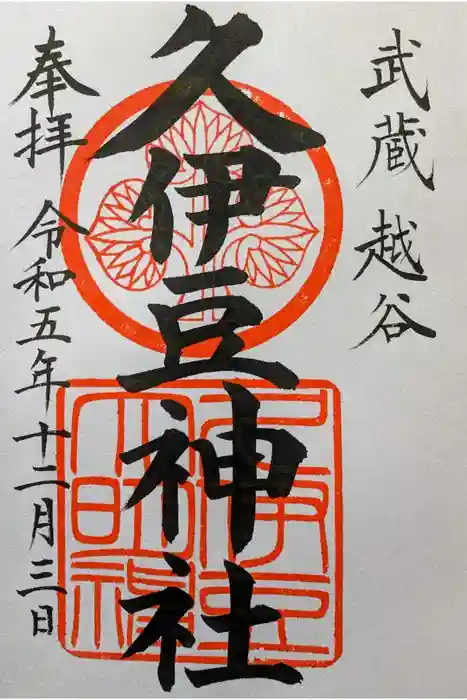 武蔵 越谷
久伊豆神社
奉拝 令和五年十二月三日